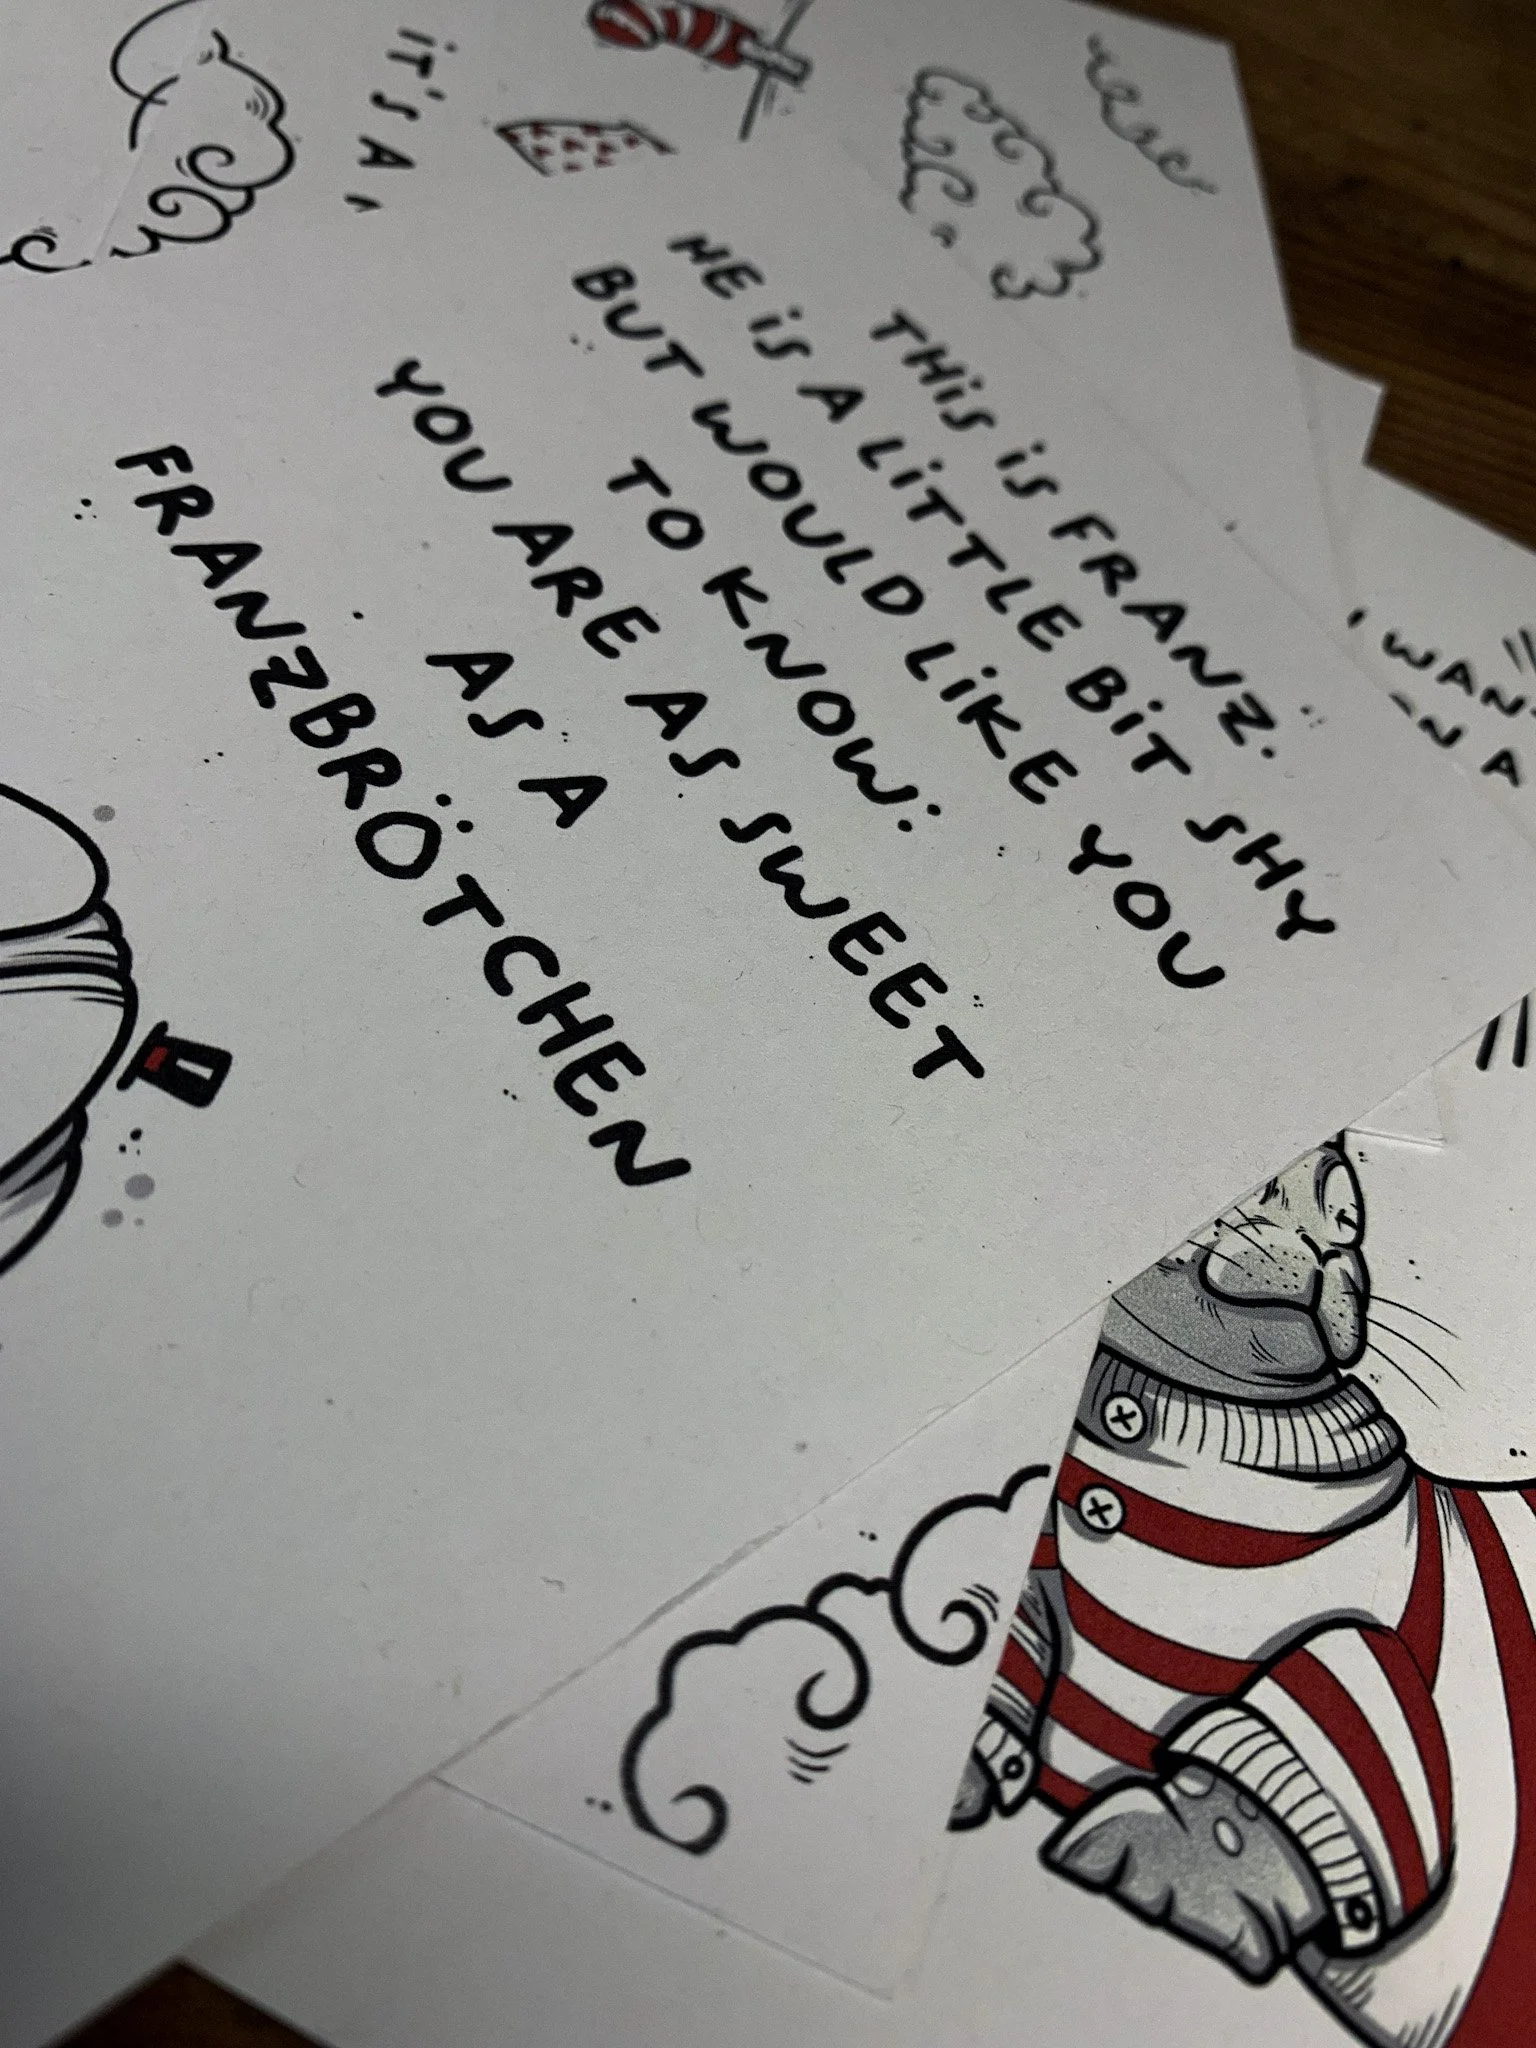 THIS IS FRANZ.
HE IS A LITTLE BIT SHY
BUT WOULD LIKE YOU
TO KNOW:
YOU ARE AS SWEET
AS A
FRANZBRÖTCHEN
IT'S A
I WANT
IN A